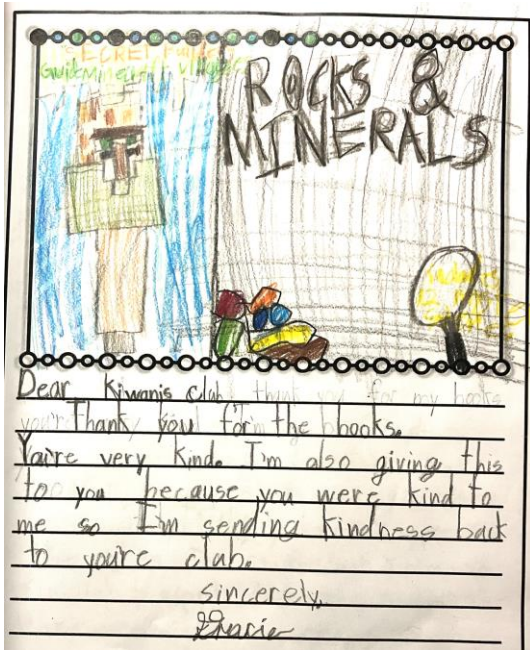 SECRET
Guide Minecraft
ROCKS &
MINERALS
Dear Kiwanis club thank you for my books
Thank you for the books.
You're very kind. I'm also giving this
to you because you were kind to
me so I'm sending kindness back
to you're club.
sincerely,
Gracie